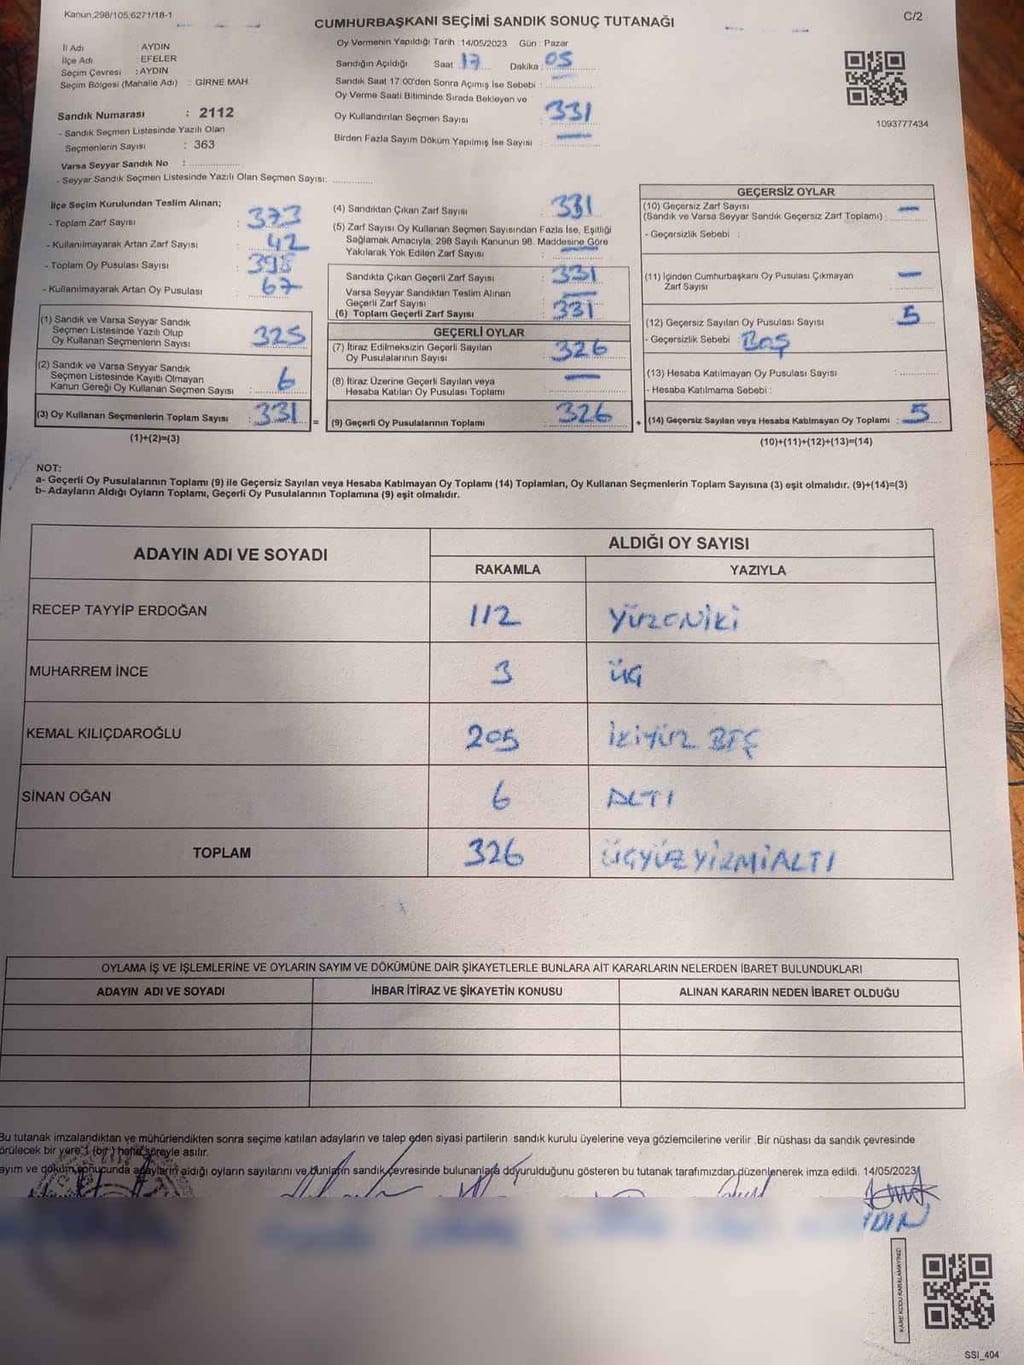 Kanun,298/105,6271/18-1
CUMHURBAŞKANI SEÇİMİ SANDIK SONUÇ TUTANAĞI
C/2
İl Adı AYDIN
İlçe Adı : EFELER
Seçim Çevresi : AYDIN
Seçim Bölgesi (Mahalle Adı) : GİRNE MAH.
Sandık Numarası : 2112
- Sandık Seçmen Listesinde Yazılı Olan
Seçmenlerin Sayısı : 363
Varsa Seyyar Sandık No :
- Seyyar Sandık Seçmen Listesinde Yazılı Olan Seçmen Sayısı:
Oy Vermenin Yapıldığı Tarih :14/05/2023 Gün : Pazar
Sandığın Açıldığı Saat 17 Dakika : 05
Sandık Saat 17:00'den Sonra Açımış İse Sebebi :
Oy Verme Saati Bitiminde Sırada Bekleyen ve
Oy Kullandırılan Seçmen Sayısı : 331
Birden Fazla Sayım Döküm Yapılmış İse Sayısı : —
1093777434
İlçe Seçim Kurulundan Teslim Alınan;
- Toplam Zarf Sayısı : 373
- Kullanılmayarak Artan Zarf Sayısı : 42
- Toplam Oy Pusulası Sayısı : 398
- Kullanılmayarak Artan Oy Pusulası : 67
(1) Sandık ve Varsa Seyyar Sandık
Seçmen Listesinde Yazılı Olup
Oy Kullanan Seçmenlerin Sayısı : 325
(2) Sandık ve Varsa Seyyar Sandık
Seçmen Listesinde Kayıtlı Olmayan
Kanun Gereği Oy Kullanan Seçmen Sayısı : 6
(3) Oy Kullanan Seçmenlerin Toplam Sayısı : 331
(1)+(2)=(3)
(4) Sandıktan Çıkan Zarf Sayısı : 331
(5) Zarf Sayısı Oy Kullanan Seçmen Sayısından Fazla İse, Eşitliği
Sağlamak Amacıyla; 298 Sayılı Kanunun 98. Maddesine Göre
Yakılarak Yok Edilen Zarf Sayısı : —
Sandıkta Çıkan Geçerli Zarf Sayısı : 331
Varsa Seyyar Sandıktan Teslim Alınan
Geçerli Zarf Sayısı : —
(6) Toplam Geçerli Zarf Sayısı : 331
GEÇERLİ OYLAR
(7) İtiraz Edilmeksizin Geçerli Sayılan
Oy Pusulalarının Sayısı : 326
(8) İtiraz Üzerine Geçerli Sayılan veya
Hesaba Katılan Oy Pusulası Toplamı : —
= (9) Geçerli Oy Pusulalarının Toplamı : 326 +
GEÇERSİZ OYLAR
(10) Geçersiz Zarf Sayısı : —
(Sandık ve Varsa Seyyar Sandık Geçersiz Zarf Toplamı)
- Geçersizlik Sebebi :
(11) İçinden Cumhurbaşkanı Oy Pusulası Çıkmayan
Zarf Sayısı : —
(12) Geçersiz Sayılan Oy Pusulası Sayısı : 5
- Geçersizlik Sebebi : Boş
(13) Hesaba Katılmayan Oy Pusulası Sayısı :
- Hesaba Katılmama Sebebi :
(14) Geçersiz Sayılan veya Hesaba Katılmayan Oy Toplamı : 5
(10)+(11)+(12)+(13)=(14)
NOT:
a- Geçerli Oy Pusulalarının Toplamı (9) ile Geçersiz Sayılan veya Hesaba Katılmayan Oy Toplamı (14) Toplamları, Oy Kullanan Seçmenlerin Toplam Sayısına (3) eşit olmalıdır. (9)+(14)=(3)
b- Adayların Aldığı Oyların Toplamı, Geçerli Oy Pusulalarının Toplamına (9) eşit olmalıdır.
ADAYIN ADI VE SOYADI
ALDIĞI OY SAYISI
RAKAMLA YAZIYLA
RECEP TAYYİP ERDOĞAN 112 YÜZONİKİ
MUHARREM İNCE 3 ÜÇ
KEMAL KILIÇDAROĞLU 205 İKİYÜZ BEŞ
SİNAN OĞAN 6 ALTI
TOPLAM 326 ÜÇYÜZYİRMİALTI
OYLAMA İŞ VE İŞLEMLERİNE VE OYLARIN SAYIM VE DÖKÜMÜNE DAİR ŞİKAYETLERLE BUNLARA AİT KARARLARIN NELERDEN İBARET BULUNDUKLARI
ADAYIN ADI VE SOYADI İHBAR İTİRAZ VE ŞİKAYETİN KONUSU ALINAN KARARIN NEDEN İBARET OLDUĞU
Bu tutanak imzalandıktan ve mühürlendikten sonra seçime katılan adayların ve talep eden siyasi partilerin sandık kurulu üyelerine veya gözlemcilerine verilir .Bir nüshası da sandık çevresinde
örülecek bir yere 1 (bir) hafta süreyle asılır.
ayım ve döküm sonucunda adayların aldığı oyların sayılarını ve bunların sandık çevresinde bulunanlara duyurulduğunu gösteren bu tutanak tarafımızdan düzenlenerek imza edildi. 14/05/2023
KARE KODU KARALAMAYINIZ!
SSI_404